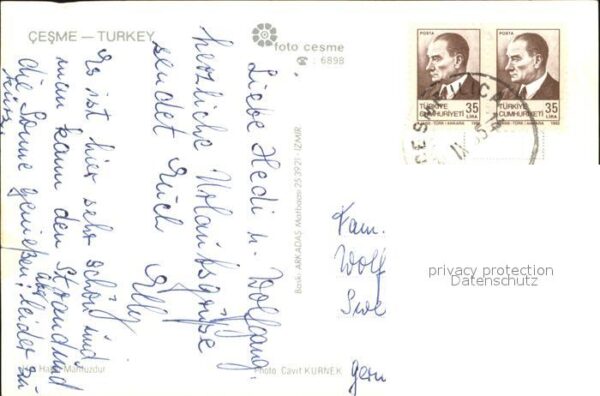 ÇEŞME — TURKEY
foto çeşme
☎ : 6898
Liebe Hedi u. Wolfgang.
herzliche Urlaubsgrüße
sendet Euch
Elly
Es ist hier sehr schön und
man kann den Strand und
die Sonne genießen, leider zu
kurz
Baskı: ARKADAŞ Matbaası 25 39 21 - İZMİR
Photo Cavit KÜRNEK
Her Hakkı Mahfuzdur
POSTA
TÜRKİYE
CUMHURİYETİ
35
LİRA
POSTA
TÜRKİYE
CUMHURİYETİ
35
LİRA
Fam.
Wolf
Germ
privacy protection
Datenschutz